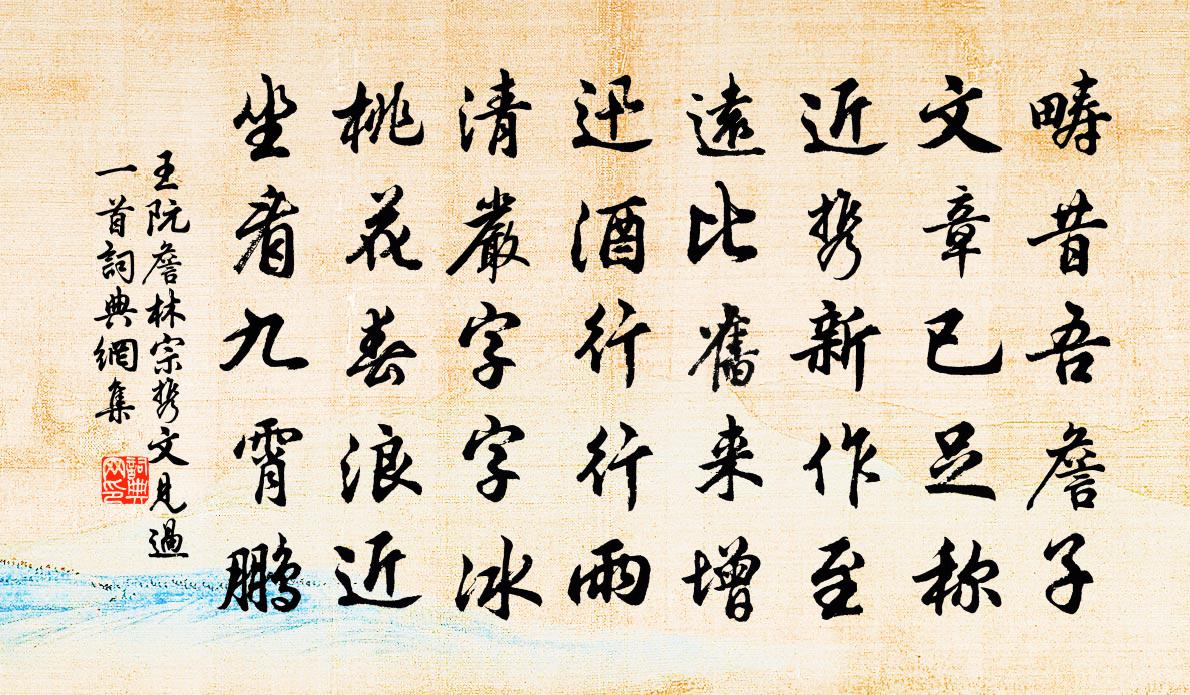 疇昔吾詹子
文章已足称
近携新作至
遠比舊来增
迅洒行行雨
清嚴字字冰
桃花春浪近
坐看九霄鹏
王阮詹林宗携文見過
一首詞典網集
詞典
网印